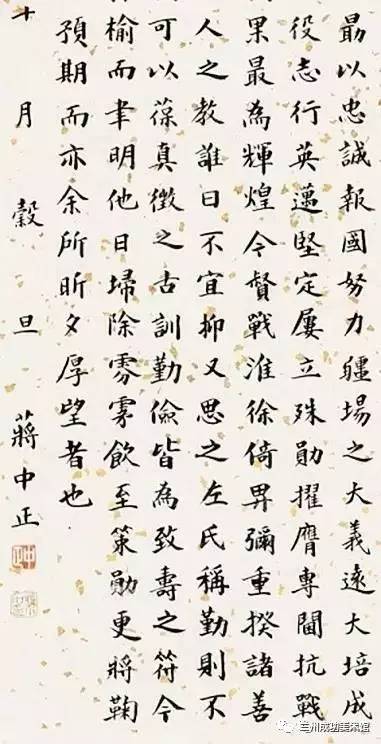 勗以忠誠報國努力疆場之大義遠大培成
役志行英邁堅定屢立殊勛擢膺專閫抗戰
果最為輝煌今督戰淮徐倚畀彌重揆諸善
人之教誰曰不宜抑又思之左氏稱勤則不
可以葆真徵之古訓勤儉皆為致壽之符今
榆而聿明他日埽除雰雺飲至策勛更將鞠
預期而亦余所昕夕厚望者也
十月穀旦 蔣中正
兰州成功美术馆